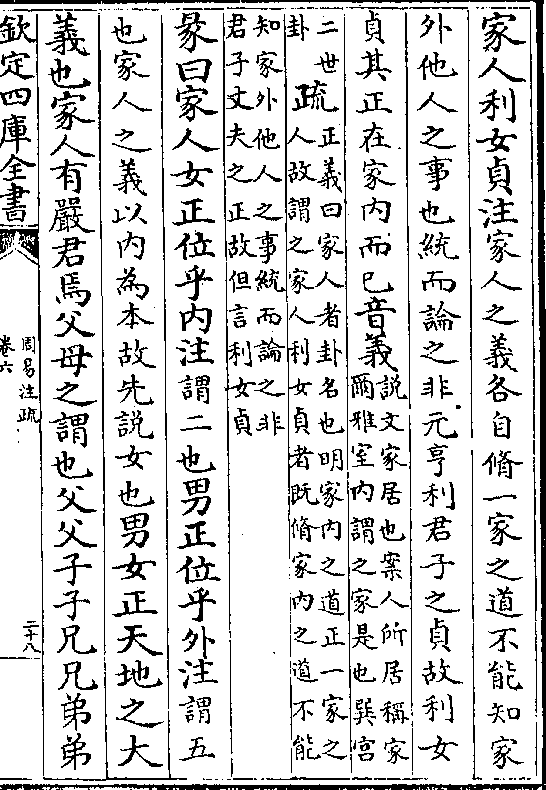 家人利女貞注家人之義各自脩一家之道不能知家
外他人之事也統而論之非元亨利君子之貞故利女
貞其正在家内而已音義說文家居也案人所居稱家
爾雅室内謂之家是也巽宫
二世
卦
疏正義曰家人者卦名也明家内之道正一家之
人故謂之家人利女貞者既脩家内之道不能
知家外他人之事統而論之非
君子丈夫之正故但言利女貞
彖曰家人女正位乎内注謂二也男正位乎外注謂五
也家人之義以内為本故先説女也男女正天地之大
義也家人有嚴君焉父母之謂也父父子子兄兄弟弟
欽定四庫全書
周易注疏
卷六
二十八